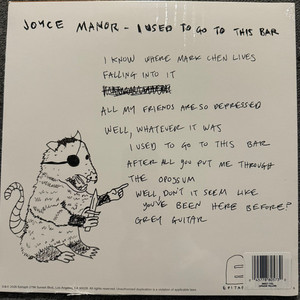 JOYCE MANOR - I USED TO GO TO THIS BAR
I KNOW WHERE MARK CHEN LIVES
FALLING INTO IT
ALL MY FRIENDS ARE SO DEPRESSED
WELL, WHATEVER IT WAS
I USED TO GO TO THIS BAR
AFTER ALL YOU PUT ME THROUGH
THE OPOSSUM
WELL, DON'T IT SEEM LIKE
YOU'VE BEEN HERE BEFORE?
GREY GUITAR
E
EPITAPH